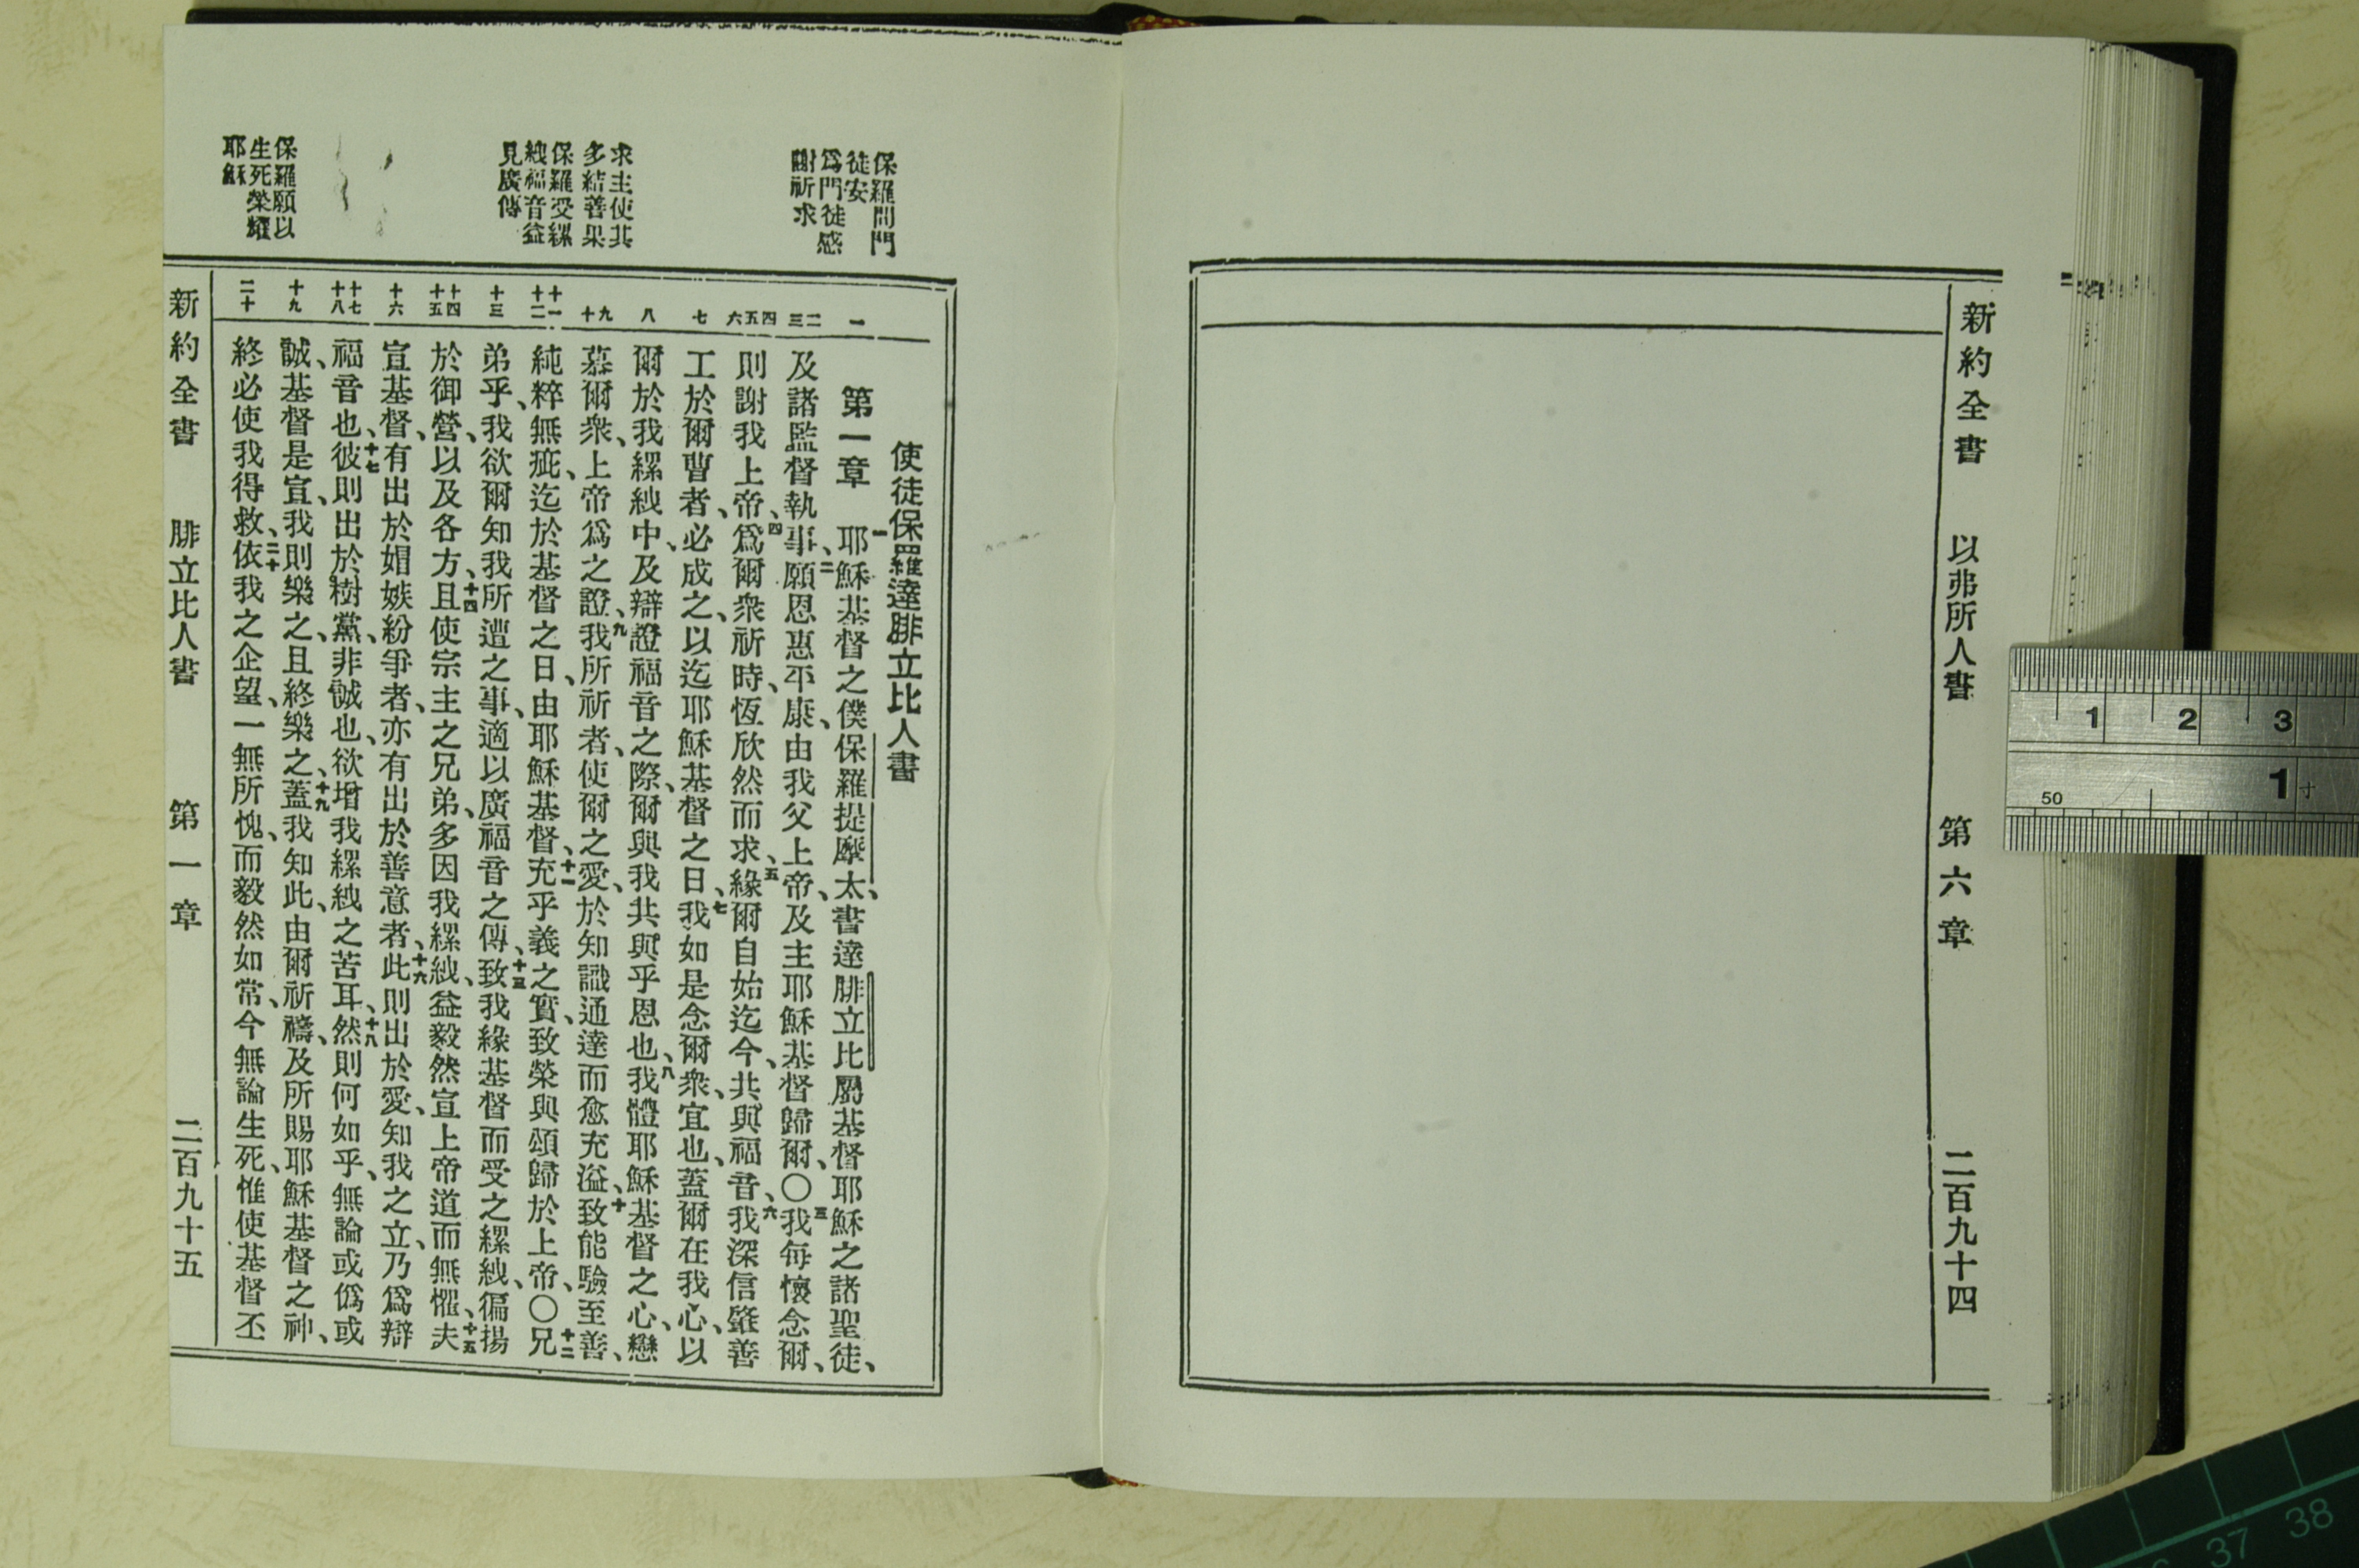 新約全書　以弗所人書　第六章　二百九十四
保羅問門
徒安
爲門徒感
謝祈求
求主使其
多結善果
保羅受縲
絏福音益
見廣傳
保羅願以
生死榮耀
耶穌
一
二
三
四
五
六
七
八
九
十
十一
十二
十三
十四
十五
十六
十七
十八
十九
二十
使徒保羅達腓立比人書
第一章　一耶穌基督之僕保羅提摩太、書達腓立比屬基督耶穌之諸聖徒、
及諸監督執事、二願恩惠平康、由我父上帝、及主耶穌基督歸爾、〇三我每懷念爾、
則謝我上帝、四爲爾衆祈時、恆欣然而求、五緣爾自始迄今、共與福音、六我深信肇善
工於爾曹者、必成之、以迄耶穌基督之日、七我如是念爾衆、宜也、蓋爾在我心、以
爾於我縲絏中、及辯證福音之際、爾與我共與乎恩也、八我體耶穌基督之心、戀
慕爾衆、上帝爲之證、九我所祈者、使爾之愛、於知識通達而愈充溢、十致能驗至善、
純粹無疵、迄於基督之日、由耶穌基督、十一充乎義之實、致榮與頌歸於上帝、〇十二兄
弟乎、我欲爾知我所遭之事、適以廣福音之傳、十三致我緣基督而受之縲絏、徧揚
於御營、以及各方、十四且使宗主之兄弟、多因我縲絏、益毅然宣上帝道而無懼、十五夫
宣基督、有出於媢嫉紛爭者、亦有出於善意者、十六此則出於愛、知我之立、乃爲辯
福音也、十七彼則出於樹黨、非誠也、欲增我縲絏之苦耳、十八然則何如乎、無論或僞或
誠、基督是宣、我則樂之、且終樂之、十九蓋我知此、由爾祈禱、及所賜耶穌基督之神、
終必使我得救、二十依我之企望、一無所愧、而毅然如常、今無論生死、惟使基督丕
新約全書　腓立比人書　第一章　二百九十五
1 2 3
50
1寸
37 38